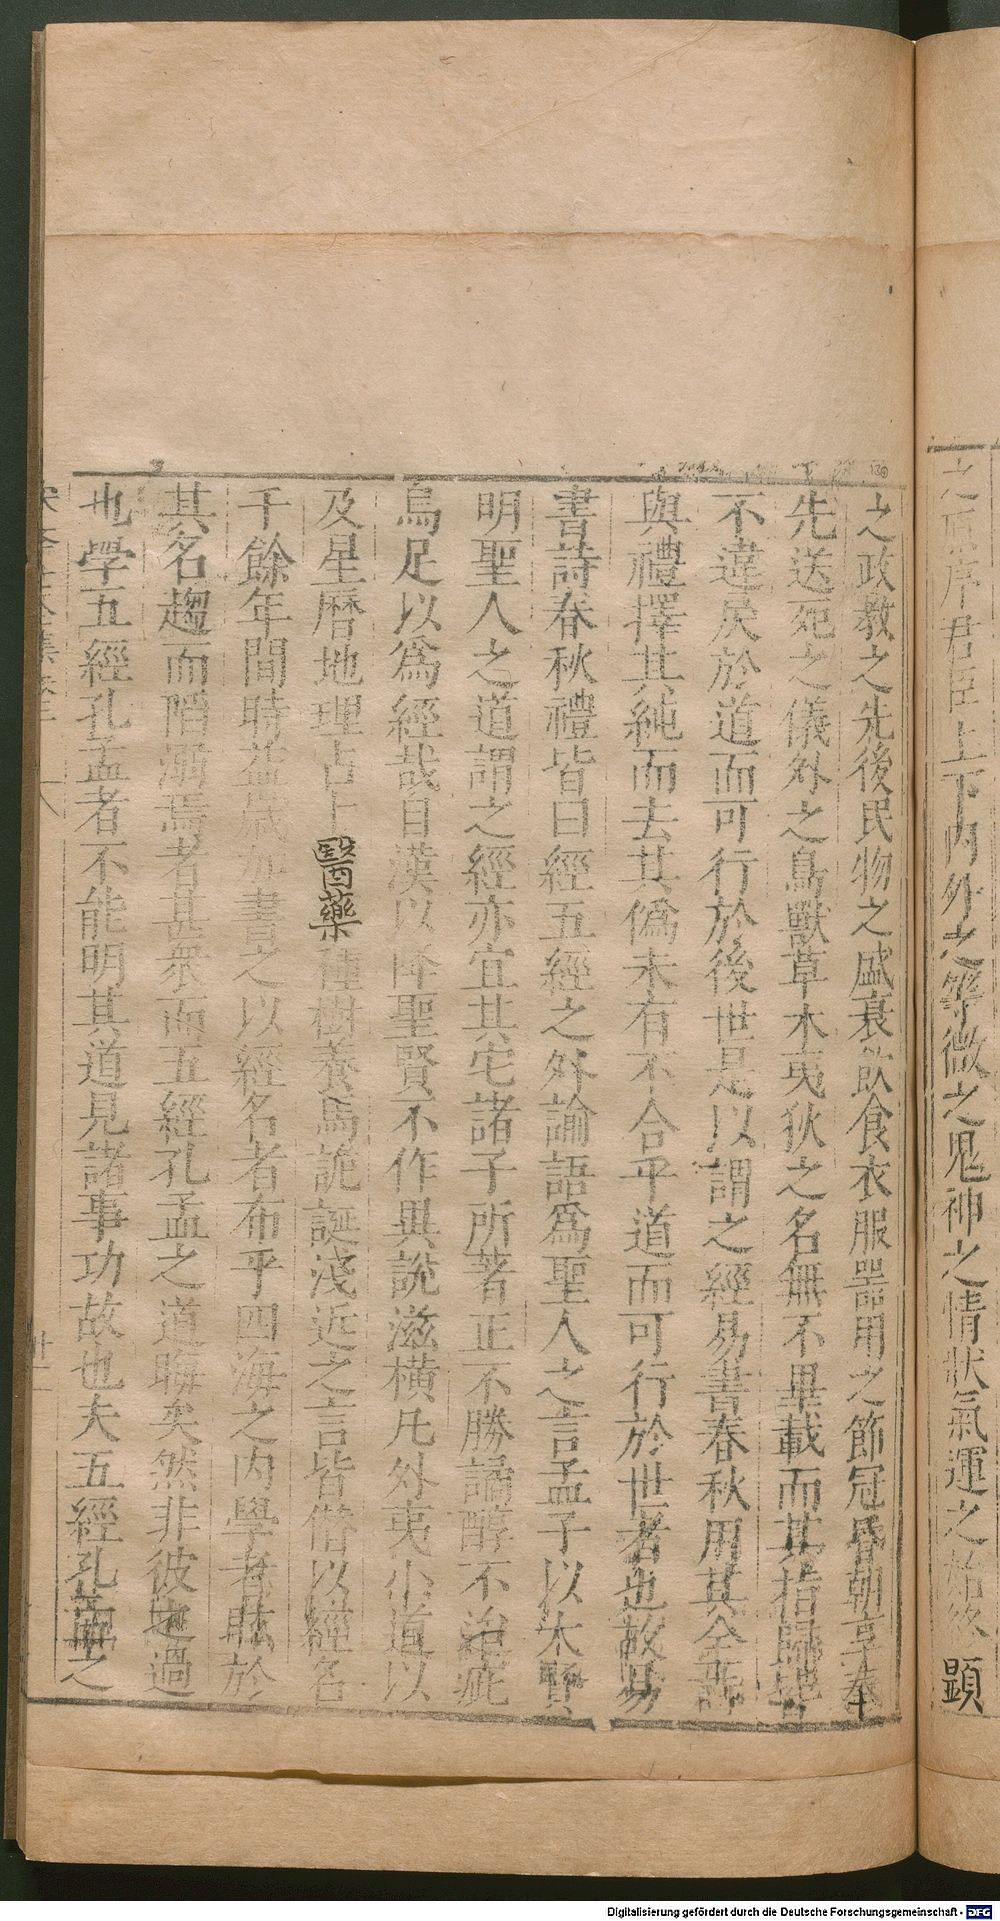 之原序君臣上下內外之等微之鬼神之情狀氣運之始終顯
之政教之先後民物之盛衰飲食衣服器用之節冠昏朝享奉
先送死之儀外之鳥獸草木夷狄之名無不畢載而其指歸皆
不違戾於道而可行於後世是以謂之經易書春秋用其全詩
與禮擇其純而去其僞未有不合乎道而可行於世者也故易
書詩春秋禮皆曰經五經之外論語爲聖人之言孟子以大賢
明聖人之道謂之經亦宜其宅諸子所著正不勝譎醇不治疵
烏足以爲經哉自漢以降聖賢不作異說滋橫凡外夷小道以
及星曆地理占卜醫藥種樹養馬詭誕淺近之言皆僭以經名
千餘年間時益歲加書之以經名者布乎四海之內學者眩於
其名趨而陷溺焉者甚衆而五經孔孟之道晦矣然非彼之過
也學五經孔孟者不能明其道見諸事功故也夫五經孔孟之
130
Digitalisierung gefördert durch die Deutsche Forschungsgemeinschaft - DFG